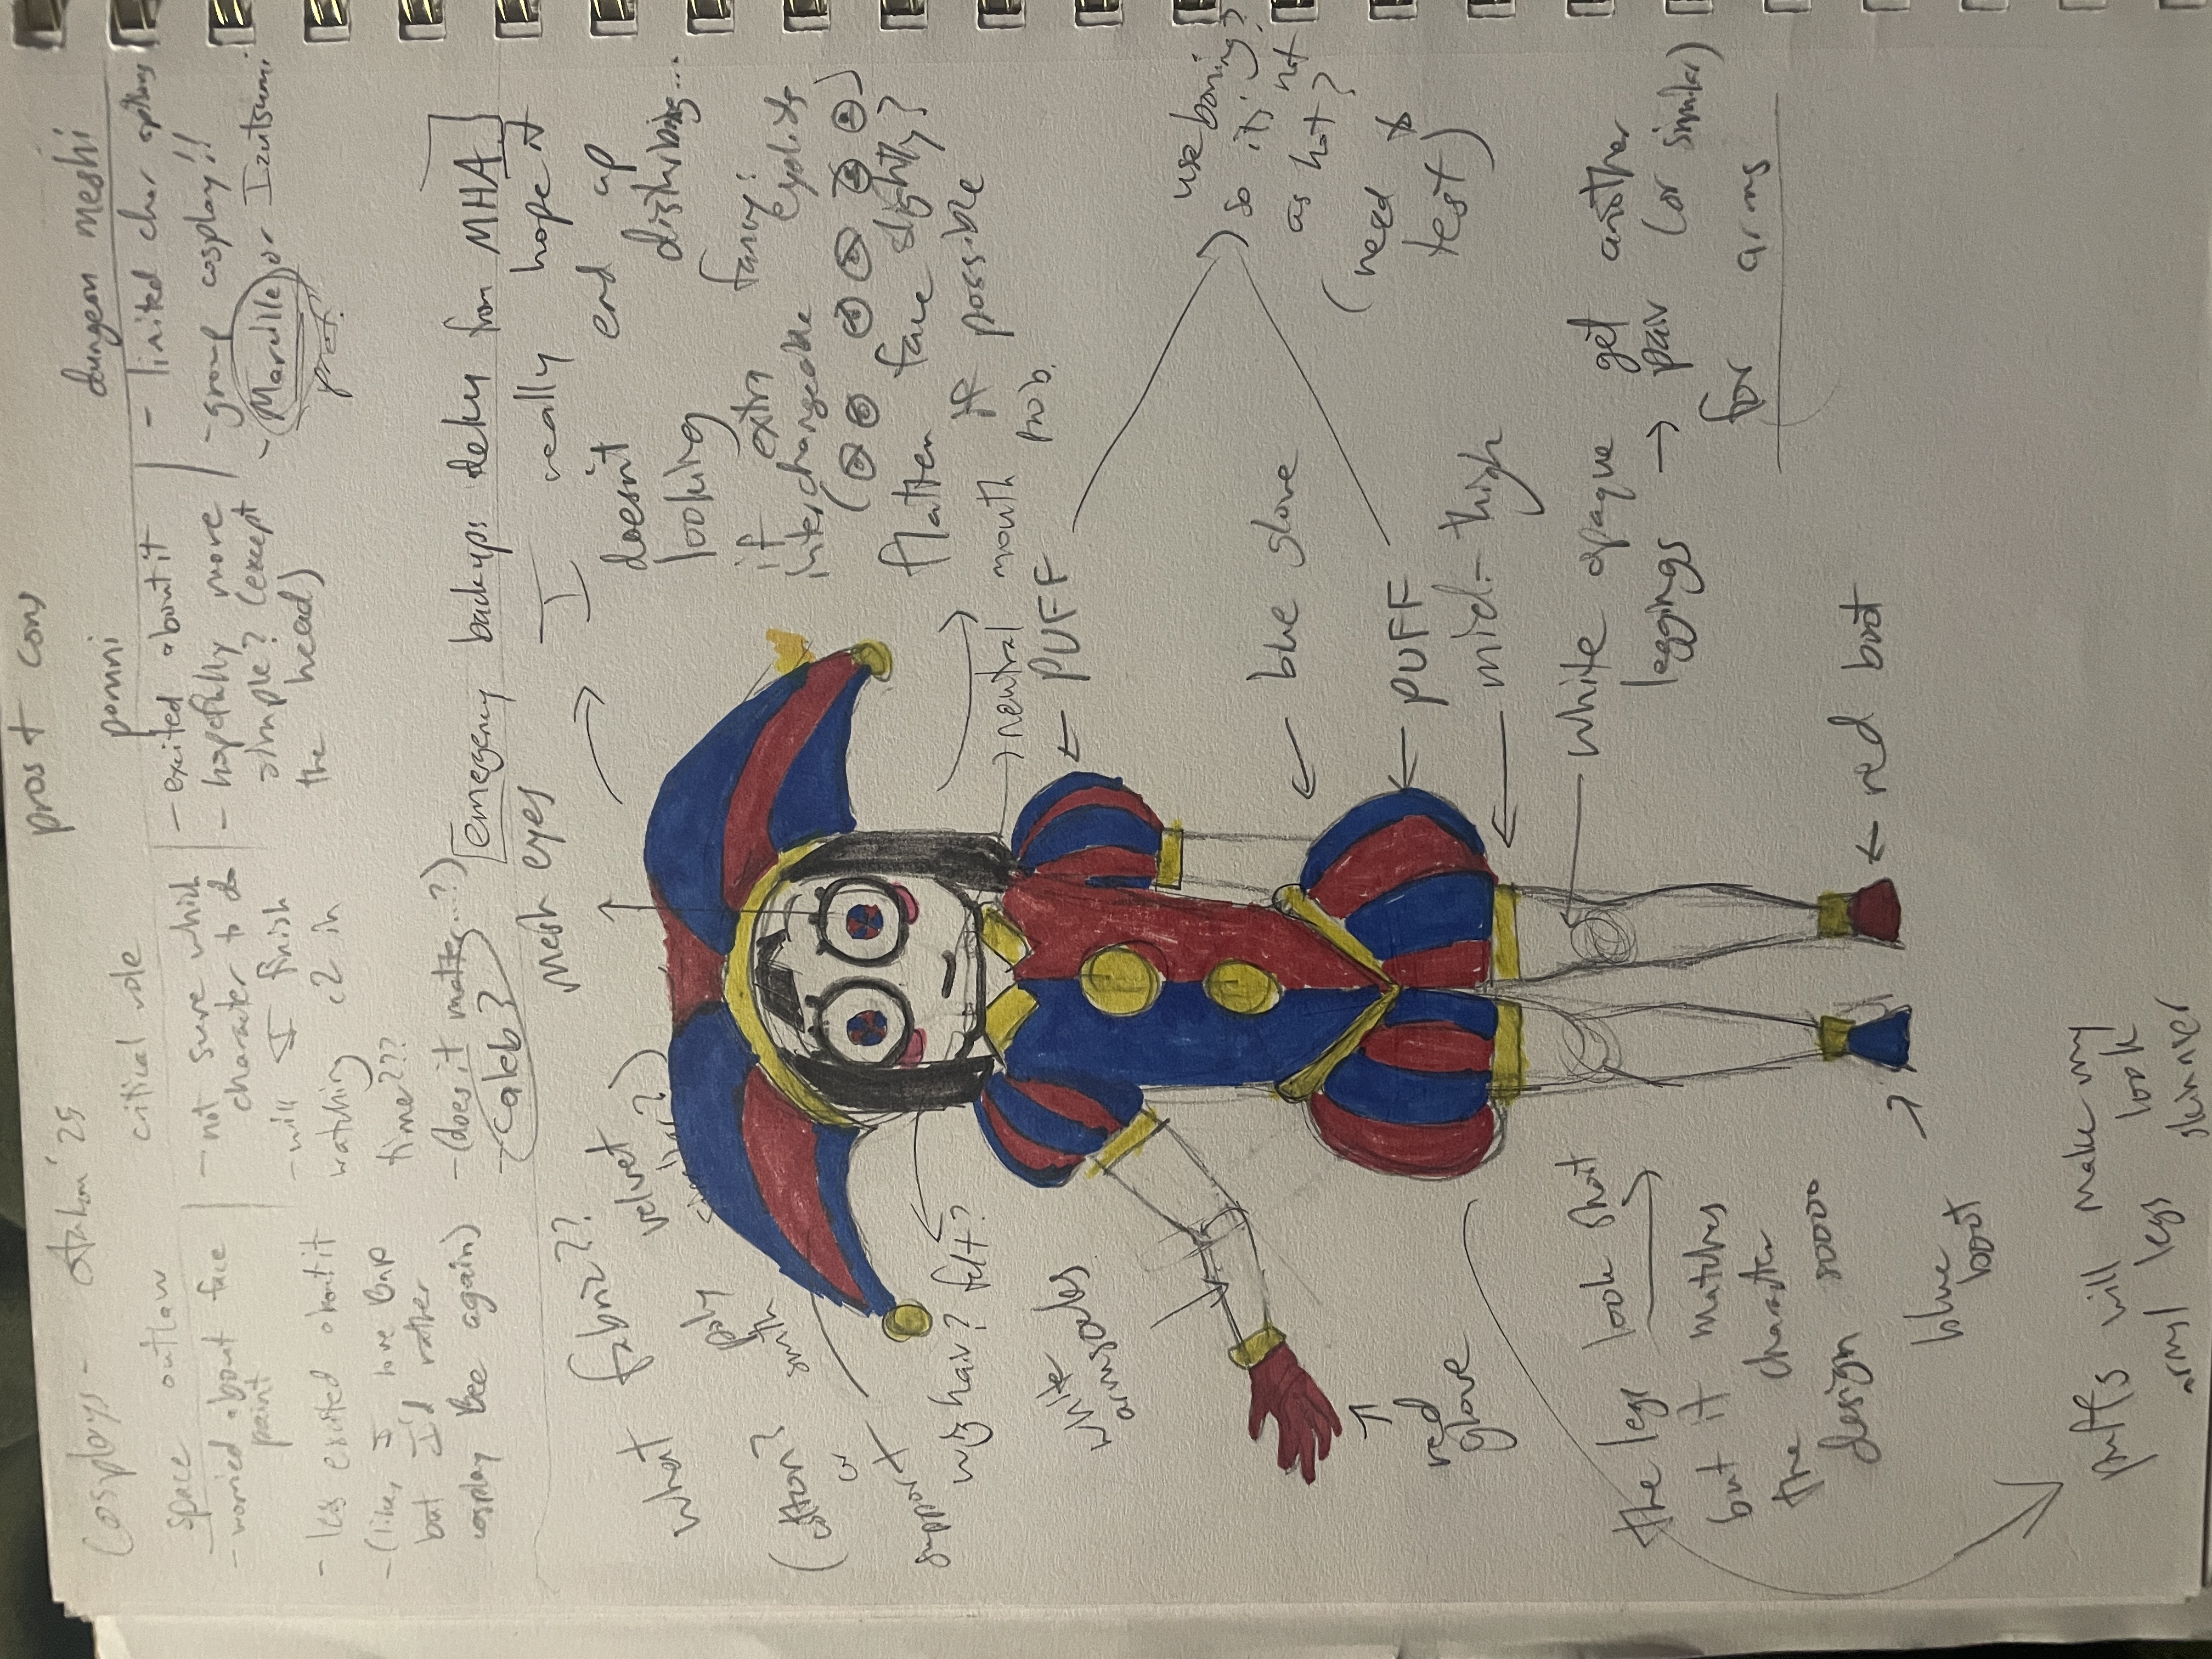 Cosplays - Otakon '25
pros + cons
space outlaw
- worried about face
paint
- less excited about it
- (like, I love BnP
but I'd rather
cosplay Bee again)
critical role
- not sure which
character to do
- will I finish
watching c2 in
time???
- (does it matter...?)
- Caleb?
pomni
- excited about it
- hopefully more
simple? (except
the head)
dungeon meshi
- limited char options
- group cosplay!!
- Marcille or Izutsumi
pref.
emergency backup: deku from MHA
what fabric??
(cotton? poly velvet?)
smth
or
support
mesh eyes
I really hope it
doesn't end up
looking disturbing...
if extra fancy:
interchangeable eyelids
flatten face slightly?
if possible
neutral mouth prob.
wig hair? felt?
white
armsocks
← PUFF
use boning?
so it's not
as hot?
(need to
test)
← blue glove
← PUFF
← mid-thigh
white opaque
leggings → get another
pair (or similar)
for arms
← red boot
red
glove
the legs look short
but it matches
the character
design sooooo
blue
boot
puffs will make my
arms/legs look
skinner